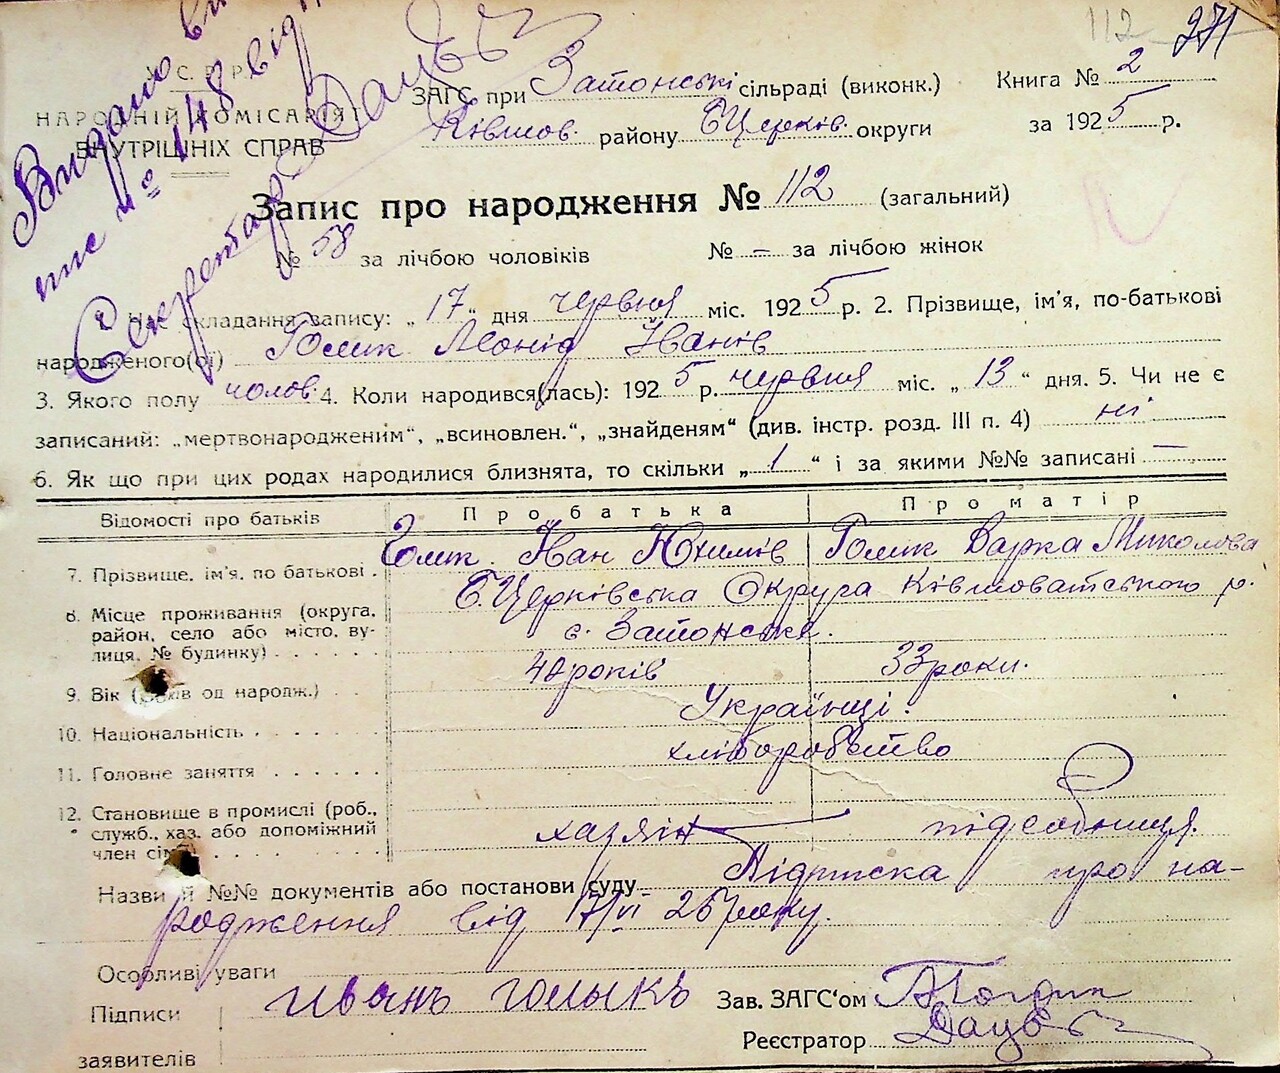 112 271
У.С.Р.Р.
НАРОДНІЙ КОМІСАРІЯТ
ВНУТРІШНІХ СПРАВ
Видано
№ 148 від
Секретар
ЗАГС при Затонські сільраді (виконк.) Книга № 2
району Б Церків. округи за 1925 р.
Запис про народження № 112 (загальний)
№ 58 за лічбою чоловіків № — за лічбою жінок
складання запису: „17“ дня червня міс. 1925 р. 2. Прізвище, ім'я, по-батькові
народженого(ої) Голик Леонід Іванів
3. Якого полу чолов. 4. Коли народився(лась): 1925 р. червня міс. „13“ дня. 5. Чи не є
записаний: „мертвонародженим“, „всиновлен.“, „знайденям“ (див. інстр. розд. III п. 4) ні
6. Як що при цих родах народилися близнята, то скільки „1“ і за якими №№ записані —
Відомості про батьків Про батька Про матір
7. Прізвище, ім'я, по батькові. Голик Іван Юхимів Голик Варка Миколова
8. Місце проживання (округа, Б.Церківська Округа Ківшоватського р.
район, село або місто, ву- с. Затонське.
лиця, № будинку)
9. Вік (років од народж.) 40 років 33 роки.
10. Національність Українці.
11. Головне заняття хліборобство
12. Становище в промислі (роб.,
служб., хаз. або допоміжний хазяїн підсобниця.
член сім'ї)
Назви й №№ документів або постанови суду Підписка про на-
родження від 17/VI 25 року.
Особливі уваги
Підписи иванъ голыкъ Зав. ЗАГС'ом
заявителів Реєстратор